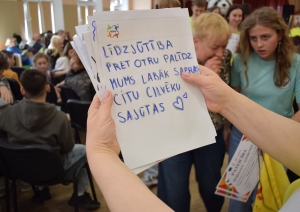 LĪDZJŪTĪBA
PRET OTRU PALĪDZ
MUMS LABĀK SAPRAST
CITU CILVĒKU
SAJŪTAS